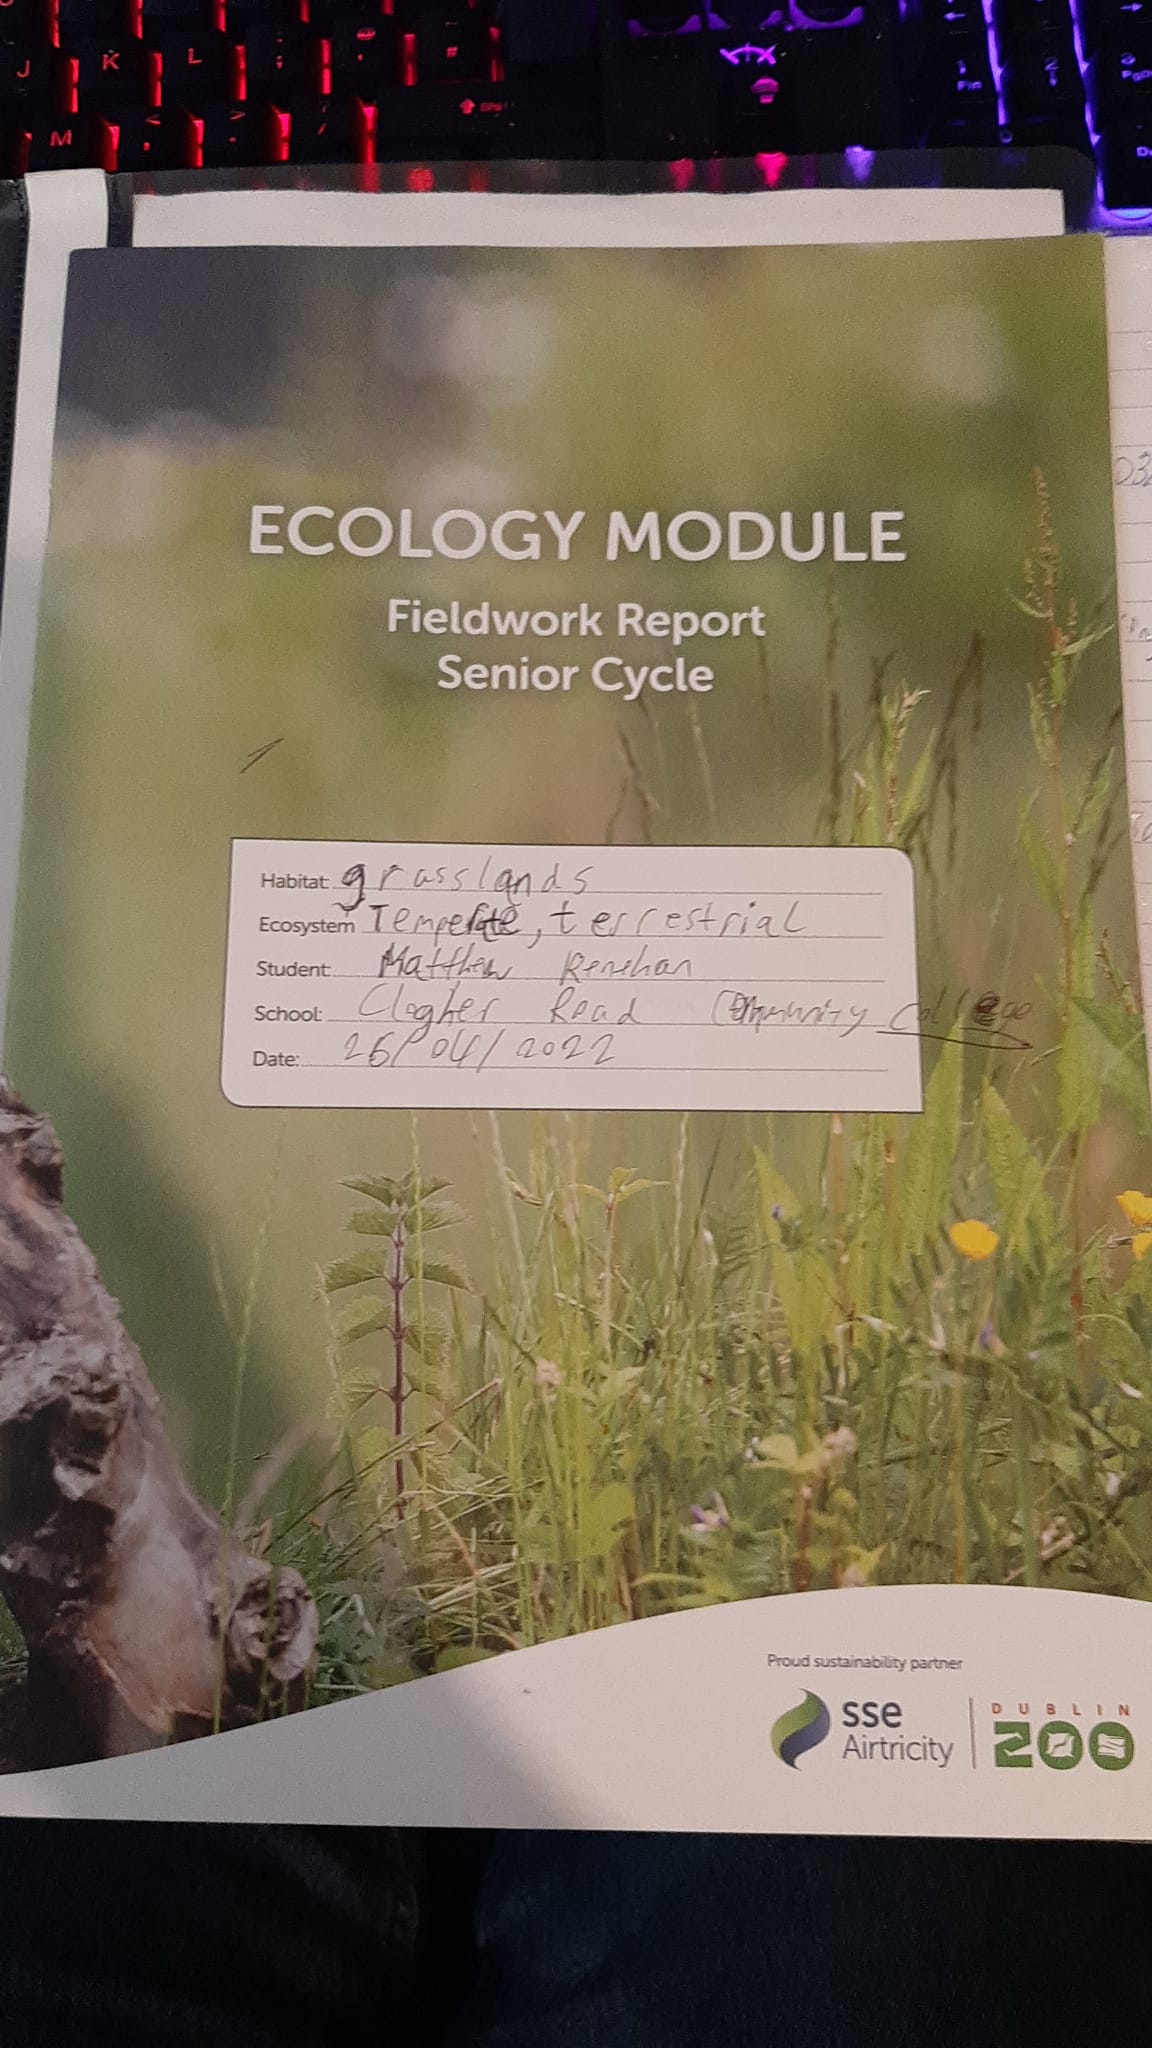 J K L ; #
M < , > . /
1 Fin 2
ECOLOGY MODULE
Fieldwork Report
Senior Cycle
Habitat: grasslands
Ecosystem Temperate, terrestrial
Student: Matthew Renehan
School: Clogher Road Community College
Date: 26/04/2022
Proud sustainability partner
sse
Airtricity
DUBLIN
ZOO